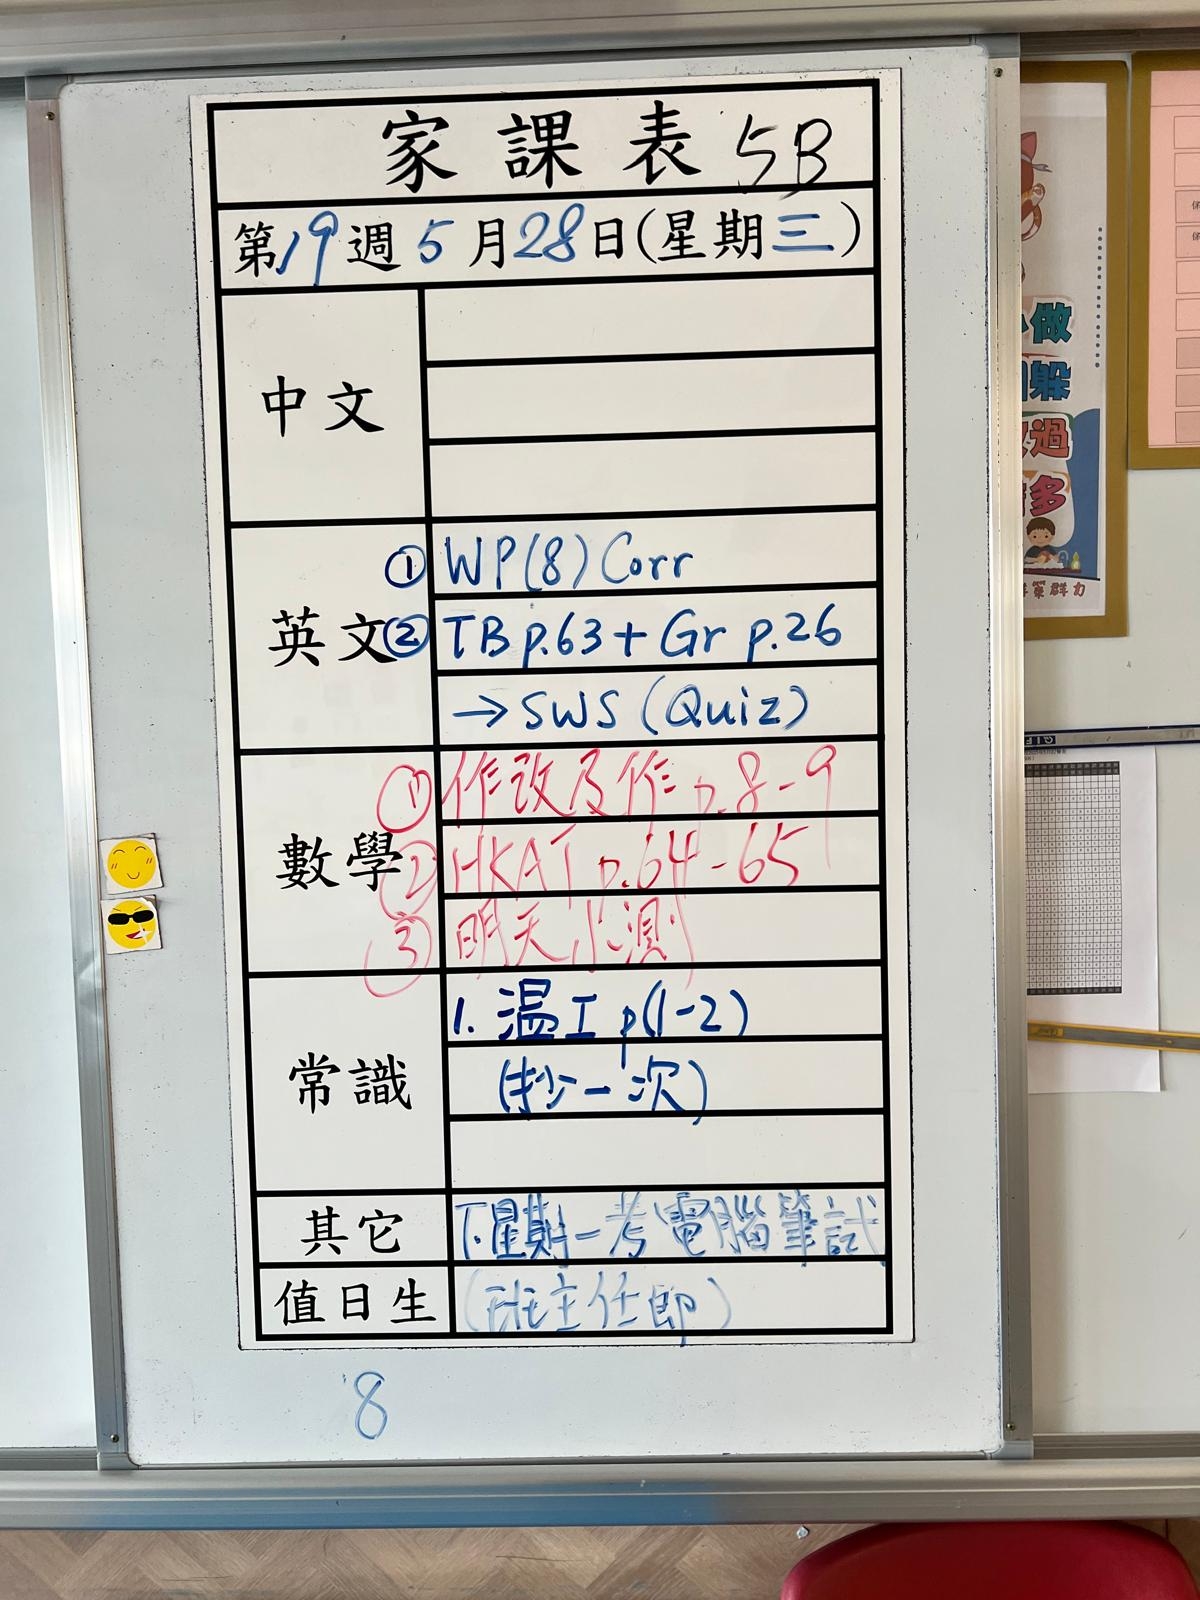 家課表 5B
第19週5月28日(星期三)
中文
英文
① WP(8) Corr
② TB p.63 + Gr p.26
→ SWS (Quiz)
數學
① 作改及作 p.8-9
② HKAT p.64-65
③ 明天小測
常識
1. 温工 p(1-2)
(抄一次)
其它
下星期一考電腦筆試
值日生
(班主任即)
8
做
躲
過
多
策群力